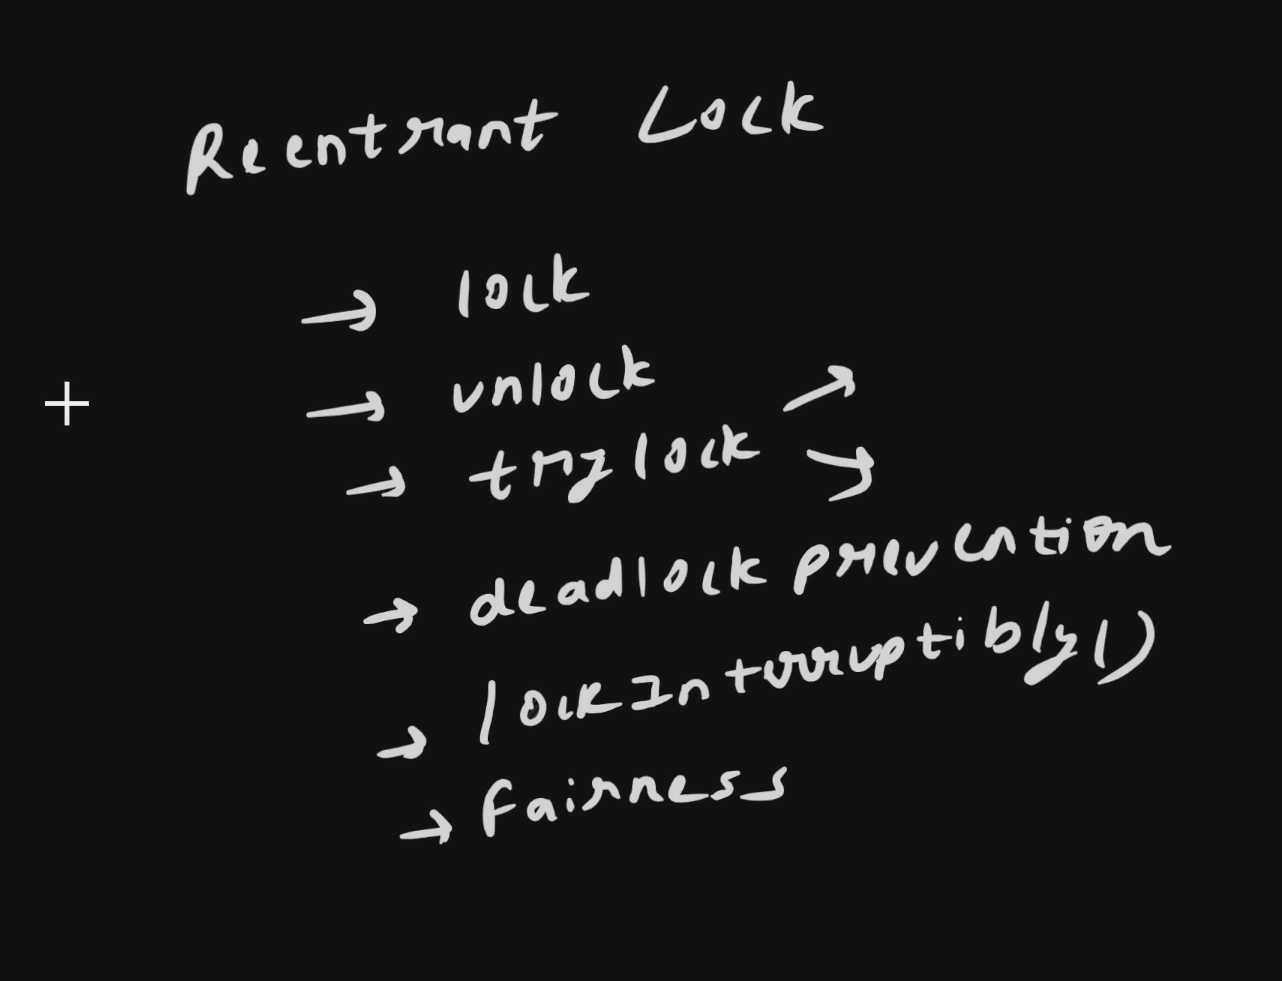 Reentrant Lock
→ lock
→ unlock
→ trylock
→ deadlock prevention
→ lockInterruptibly()
→ fairness